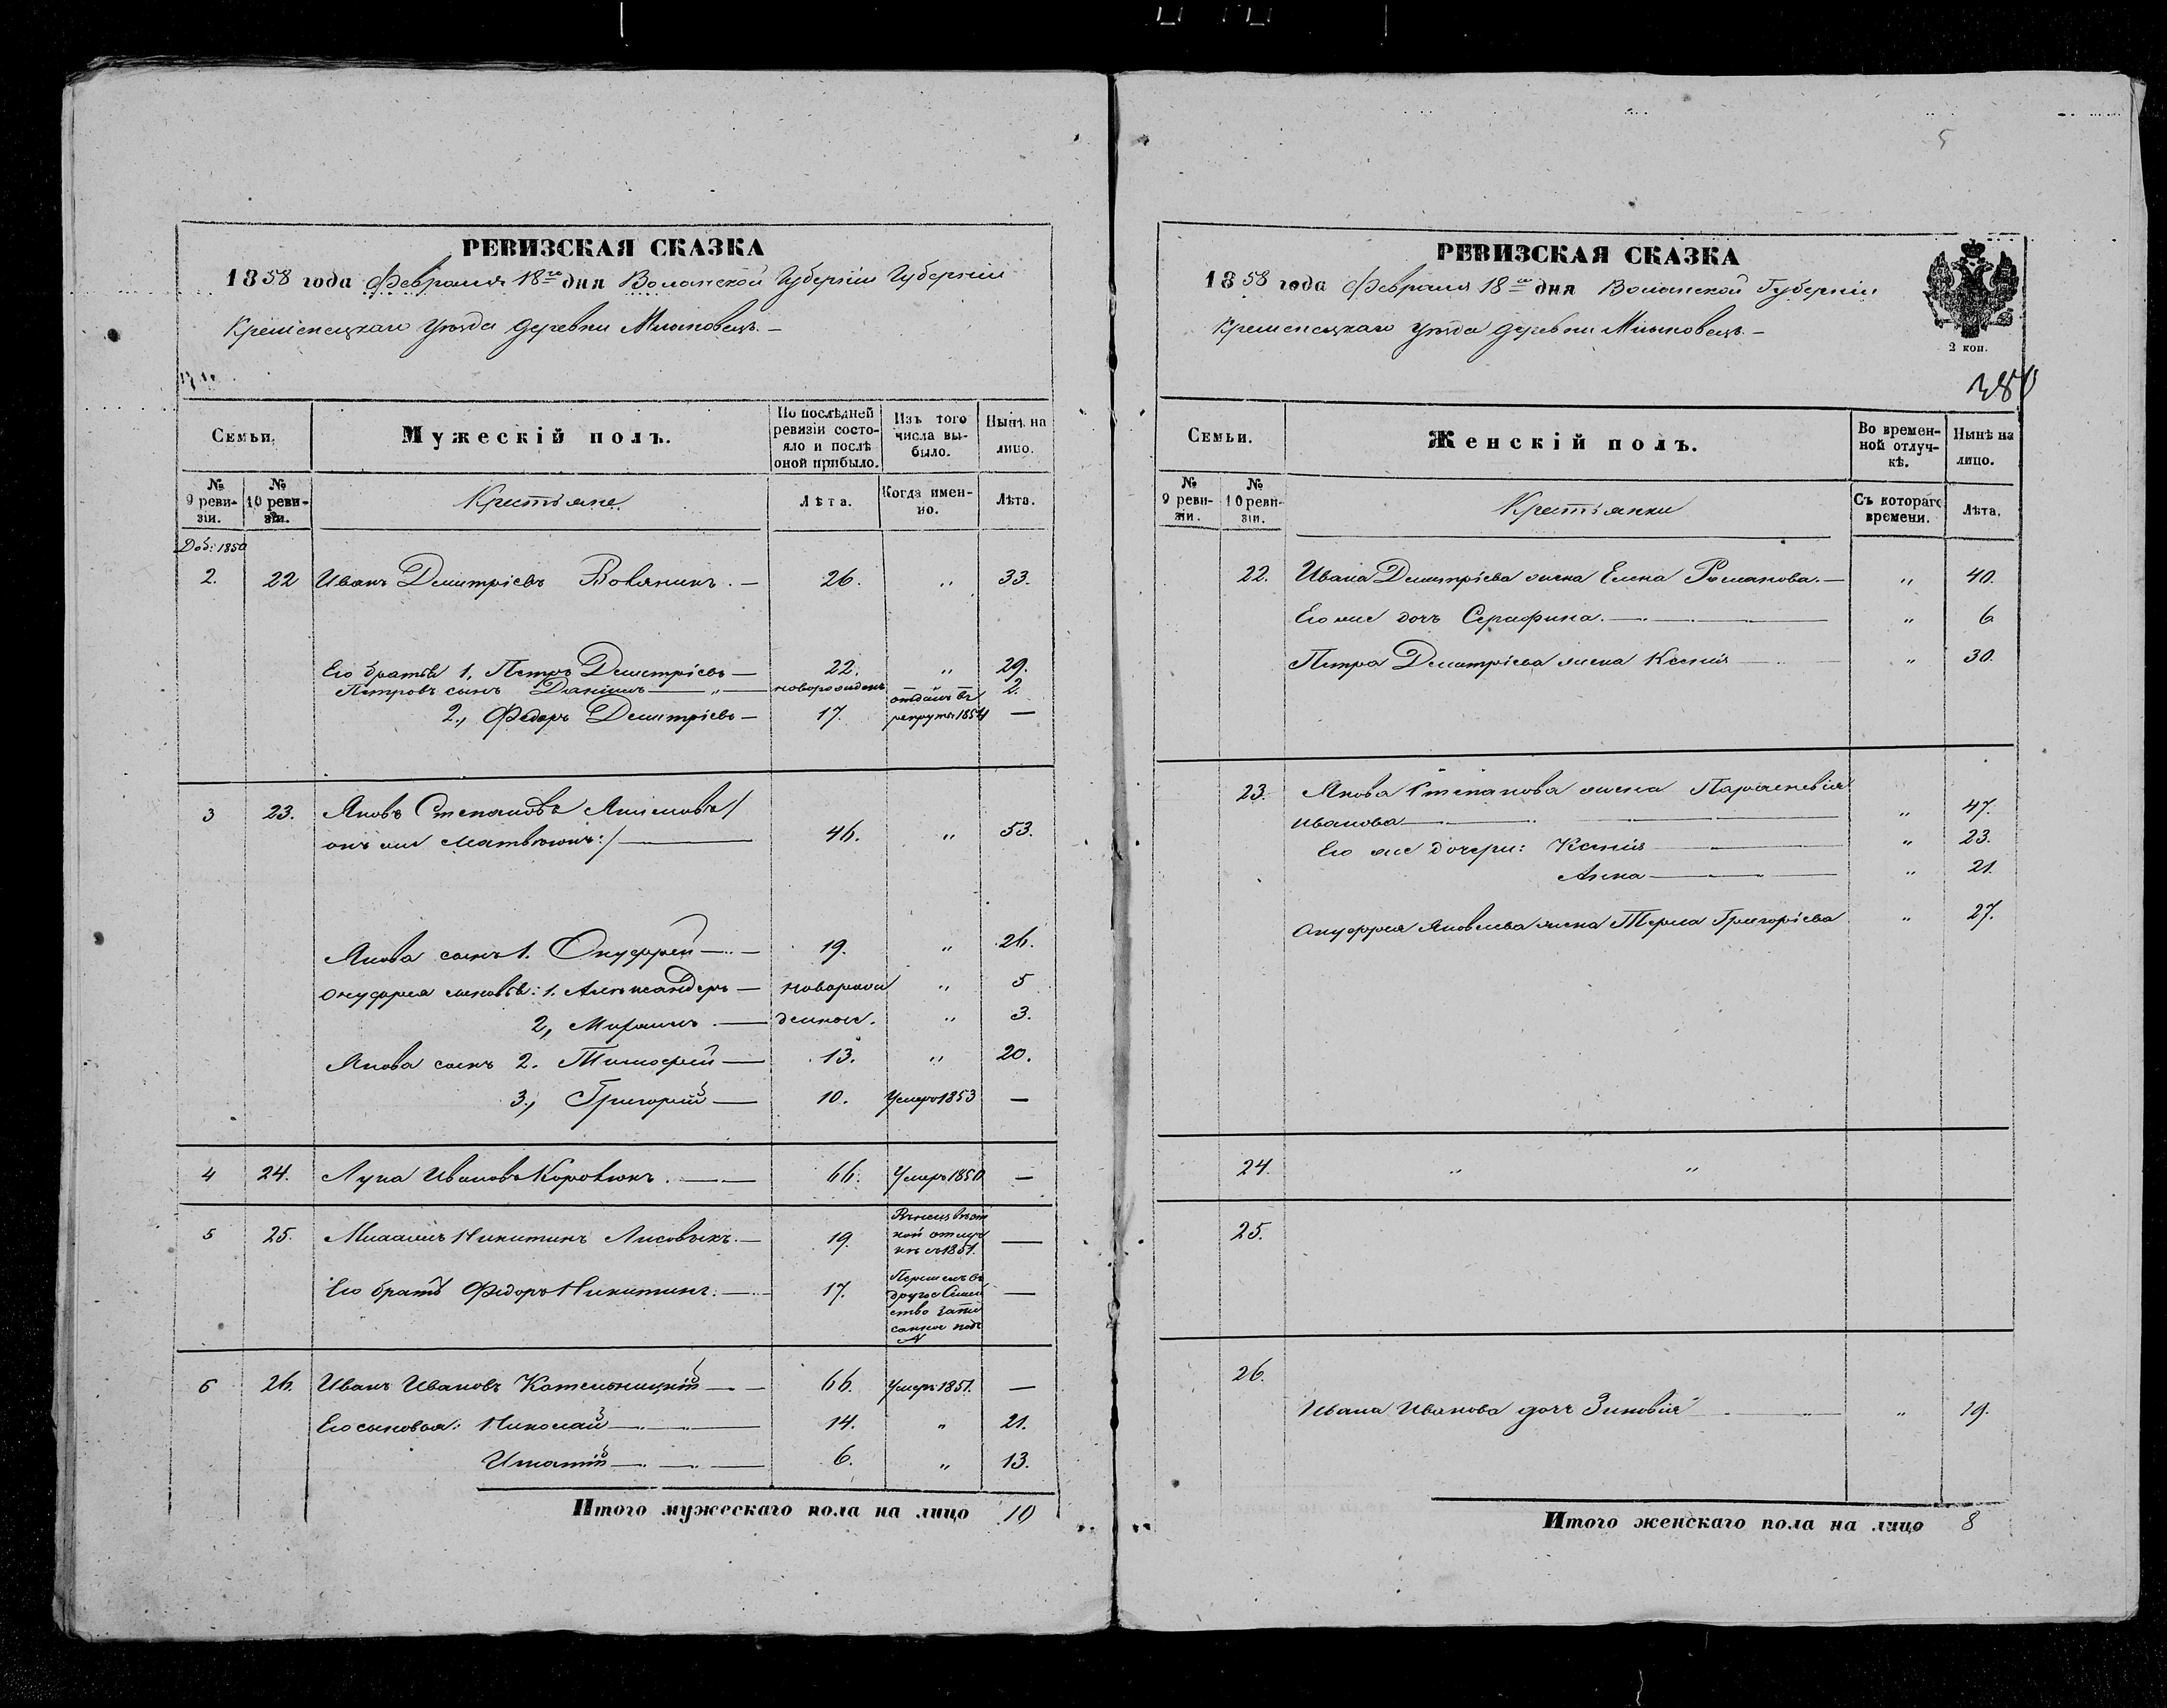 РЕВИЗСКАЯ СКАЗКА
1858 года Февраля 18го дня Волынской Губернiи Губернiи
Кременецкаго Уѣзда деревни
Семьи.
Мужескiй полъ.
По послѣдней ревизiи состо-
яло и послѣ
оной прибыло.
Изъ того
числа вы-
было.
Нынѣ на
лицо.
№
9 реви-
зiи.
№
10 реви-
зiи.
Крестьяне.
Лѣта.
Когда имен-
но.
Лѣта.
Доб: 1850
2. 22 Иванъ Дмитрiевъ 26. „ 33.
Его братья 1, Петръ Дмитрiевъ — 22. „ 29.
Петровъ сынъ Данiилъ — „ — новорожденъ 2.
2., Федоръ Дмитрiевъ — 17. отданъ въ рекруты 1854 —
3 23. Яковъ Степановъ
онъ же Матвѣюкъ:/ — 46. „ 53.
Якова сынъ 1. Онуфрей — 19. „ 26.
Онуфрiя сыновья: 1. Александеръ — новорож „ 5
2, — денные. „ 3.
Якова сынъ 2. Тимофей — 13. „ 20.
3., Григорiй — 10. Умеръ 1853 —
4 24. Лука Ивановъ Коровюкъ. — 66. Умеръ 1850 —
5 25. Никитинъ Лисовыкъ. — 19. отлуч
кѣ съ 1851. —
Его братъ Федоръ Никитинъ. — 17. Перешелъ въ
другое Семей
ство запи
санное подъ
N —
6 26. Иванъ Ивановъ Котельницкiй — 66. Умеръ 1851. —
Его сыновья: Николай — 14. „ 21.
Игнатiй — 6. „ 13.
Итого мужескаго пола на лицо 10
5
РЕВИЗСКАЯ СКАЗКА
1858 года Февраля 18го дня Волынской Губернiи
Кременецкаго Уѣзда деревни
2 коп.
380
Семьи.
Женскiй полъ.
Во времен-
ной отлуч-
кѣ.
Нынѣ на
лицо.
№
9 реви-
зiи.
№
10 реви-
зiи.
Крестьянки
Съ котораго
времени.
Лѣта.
22. Ивана Дмитрiева жена Елена Романова. — „ 40.
Его же дочь Серафина. — „ 6
Петра Дмитрiева жена Ксенiя — „ 30.
23. Якова Степанова жена Параскевiя
Иванова — „ 47.
Его же дочери: Ксенiя — „ 23.
Анна — „ 21.
Онуфрiя Яковлева жена Текла Григорiева „ 27.
24. „ „
25.
26.
Ивана Иванова дочь Зиновiя — „ 19.
Итого женскаго пола на лицо 8